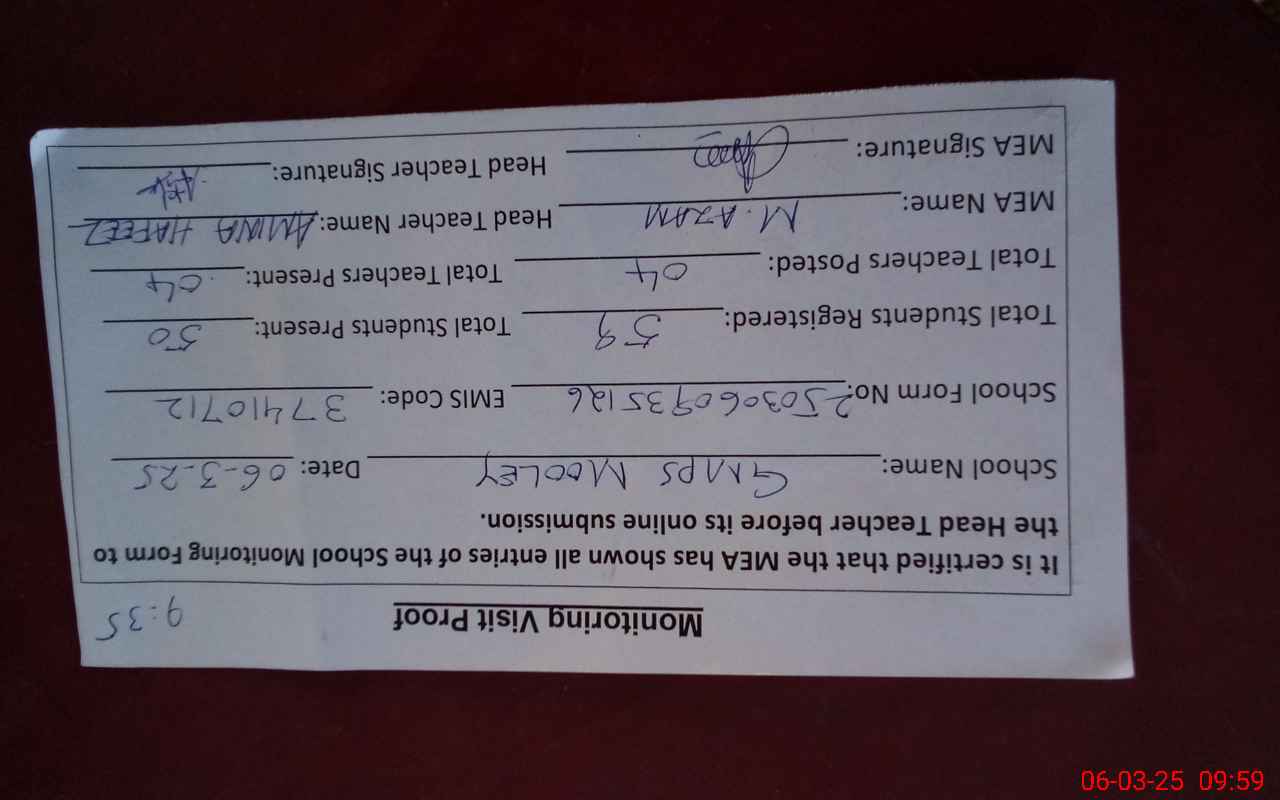 Monitoring Visit Proof 9:35
It is certified that the MEA has shown all entries of the School Monitoring Form to
the Head Teacher before its online submission.
School Name: GMPS MOOLEY Date: 06-3-25
School Form No: 2503060935126 EMIS Code: 37410712
Total Students Registered: 59 Total Students Present: 50
Total Teachers Posted: 04 Total Teachers Present: 04
MEA Name: M. AZAM Head Teacher Name: AMINA HAFEEZ
MEA Signature: Head Teacher Signature:
06-03-25 09:59